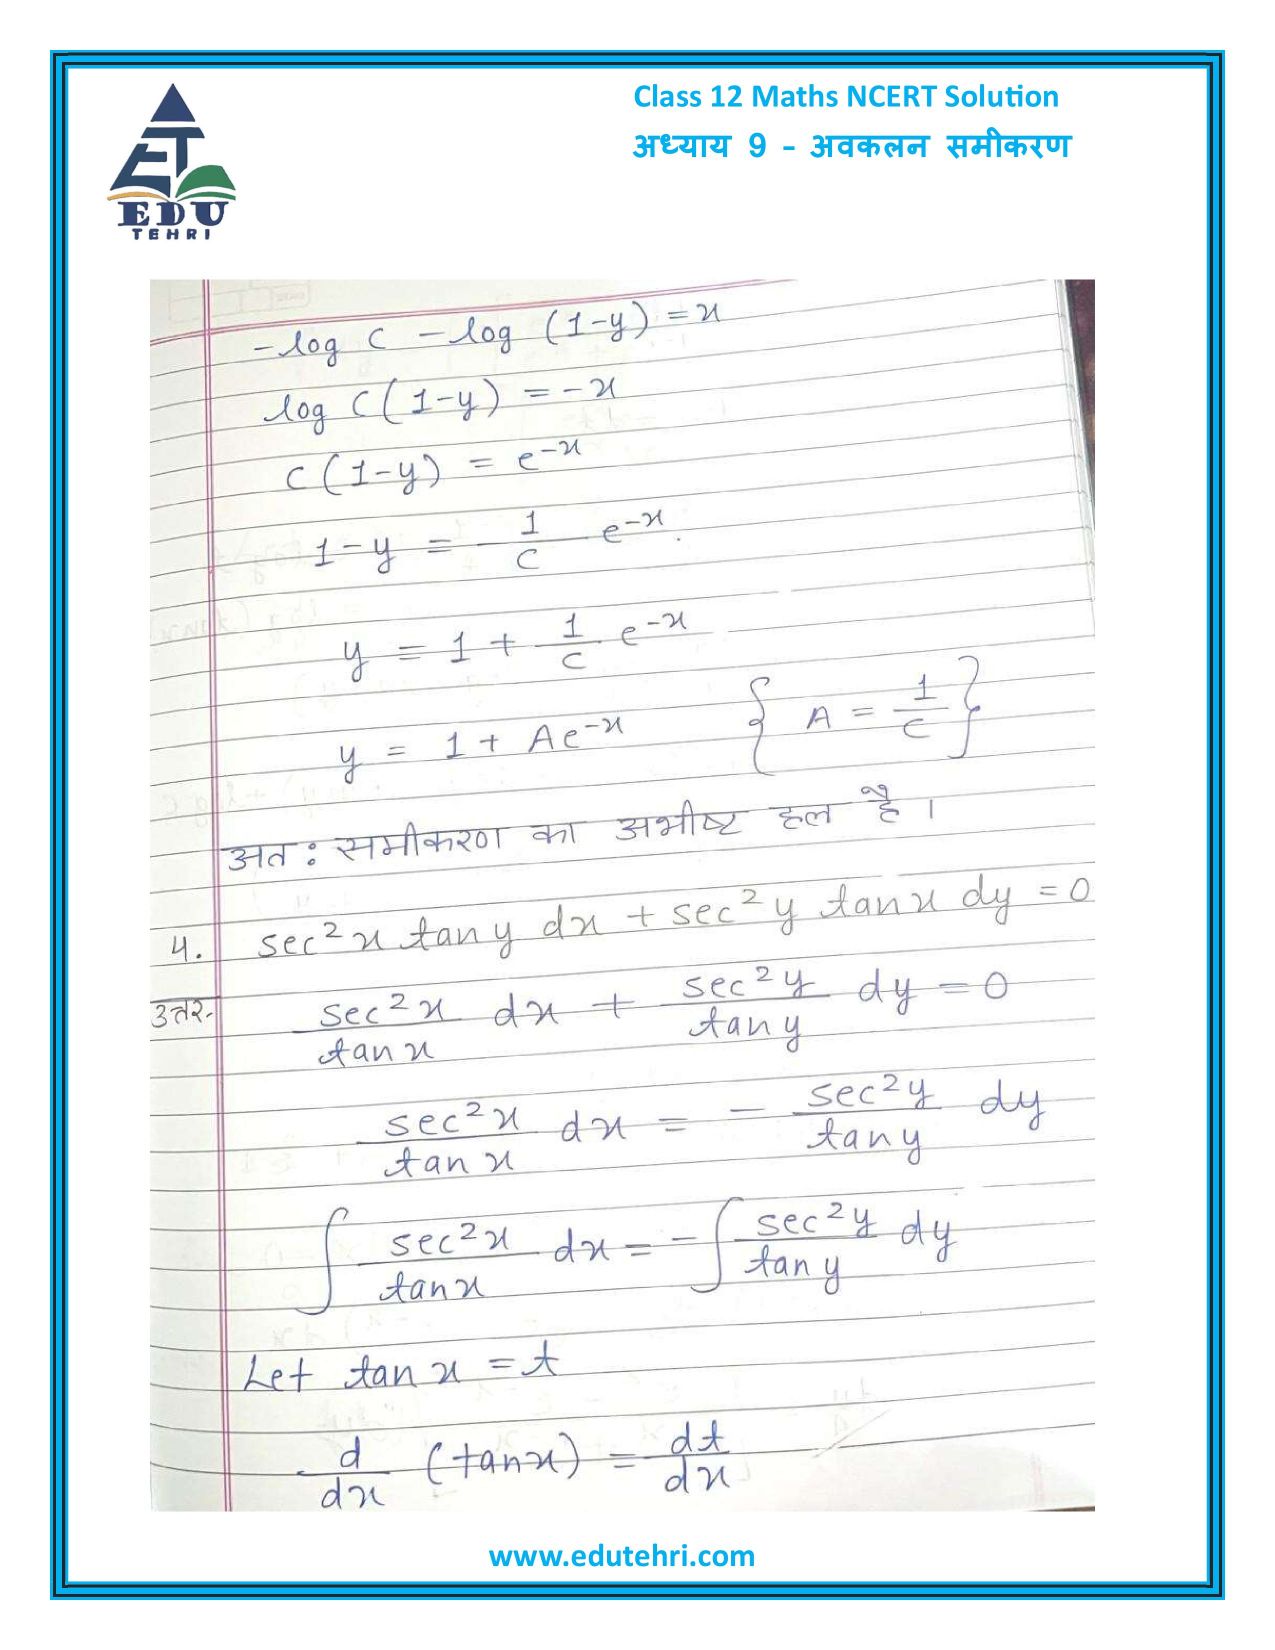 Class 12 Maths NCERT Solution
अध्याय 9 - अवकलन समीकरण
EDU
TEHRI
-log C - log (1-y) = x
log C(1-y) = -x
C(1-y) = e^-x
1-y = 1/C e^-x.
y = 1 + 1/C e^-x
y = 1 + Ae^-x { A = 1/C }
अतः समीकरण का अभीष्ट हल है।
4. sec²x tan y dx + sec²y tan x dy = 0
उत्तर- sec²x/tan x dx + sec²y/tan y dy = 0
sec²x/tan x dx = - sec²y/tan y dy
∫ sec²x/tan x dx = - ∫ sec²y/tan y dy
Let tan x = t
d/dx (tan x) = dt/dx
www.edutehri.com